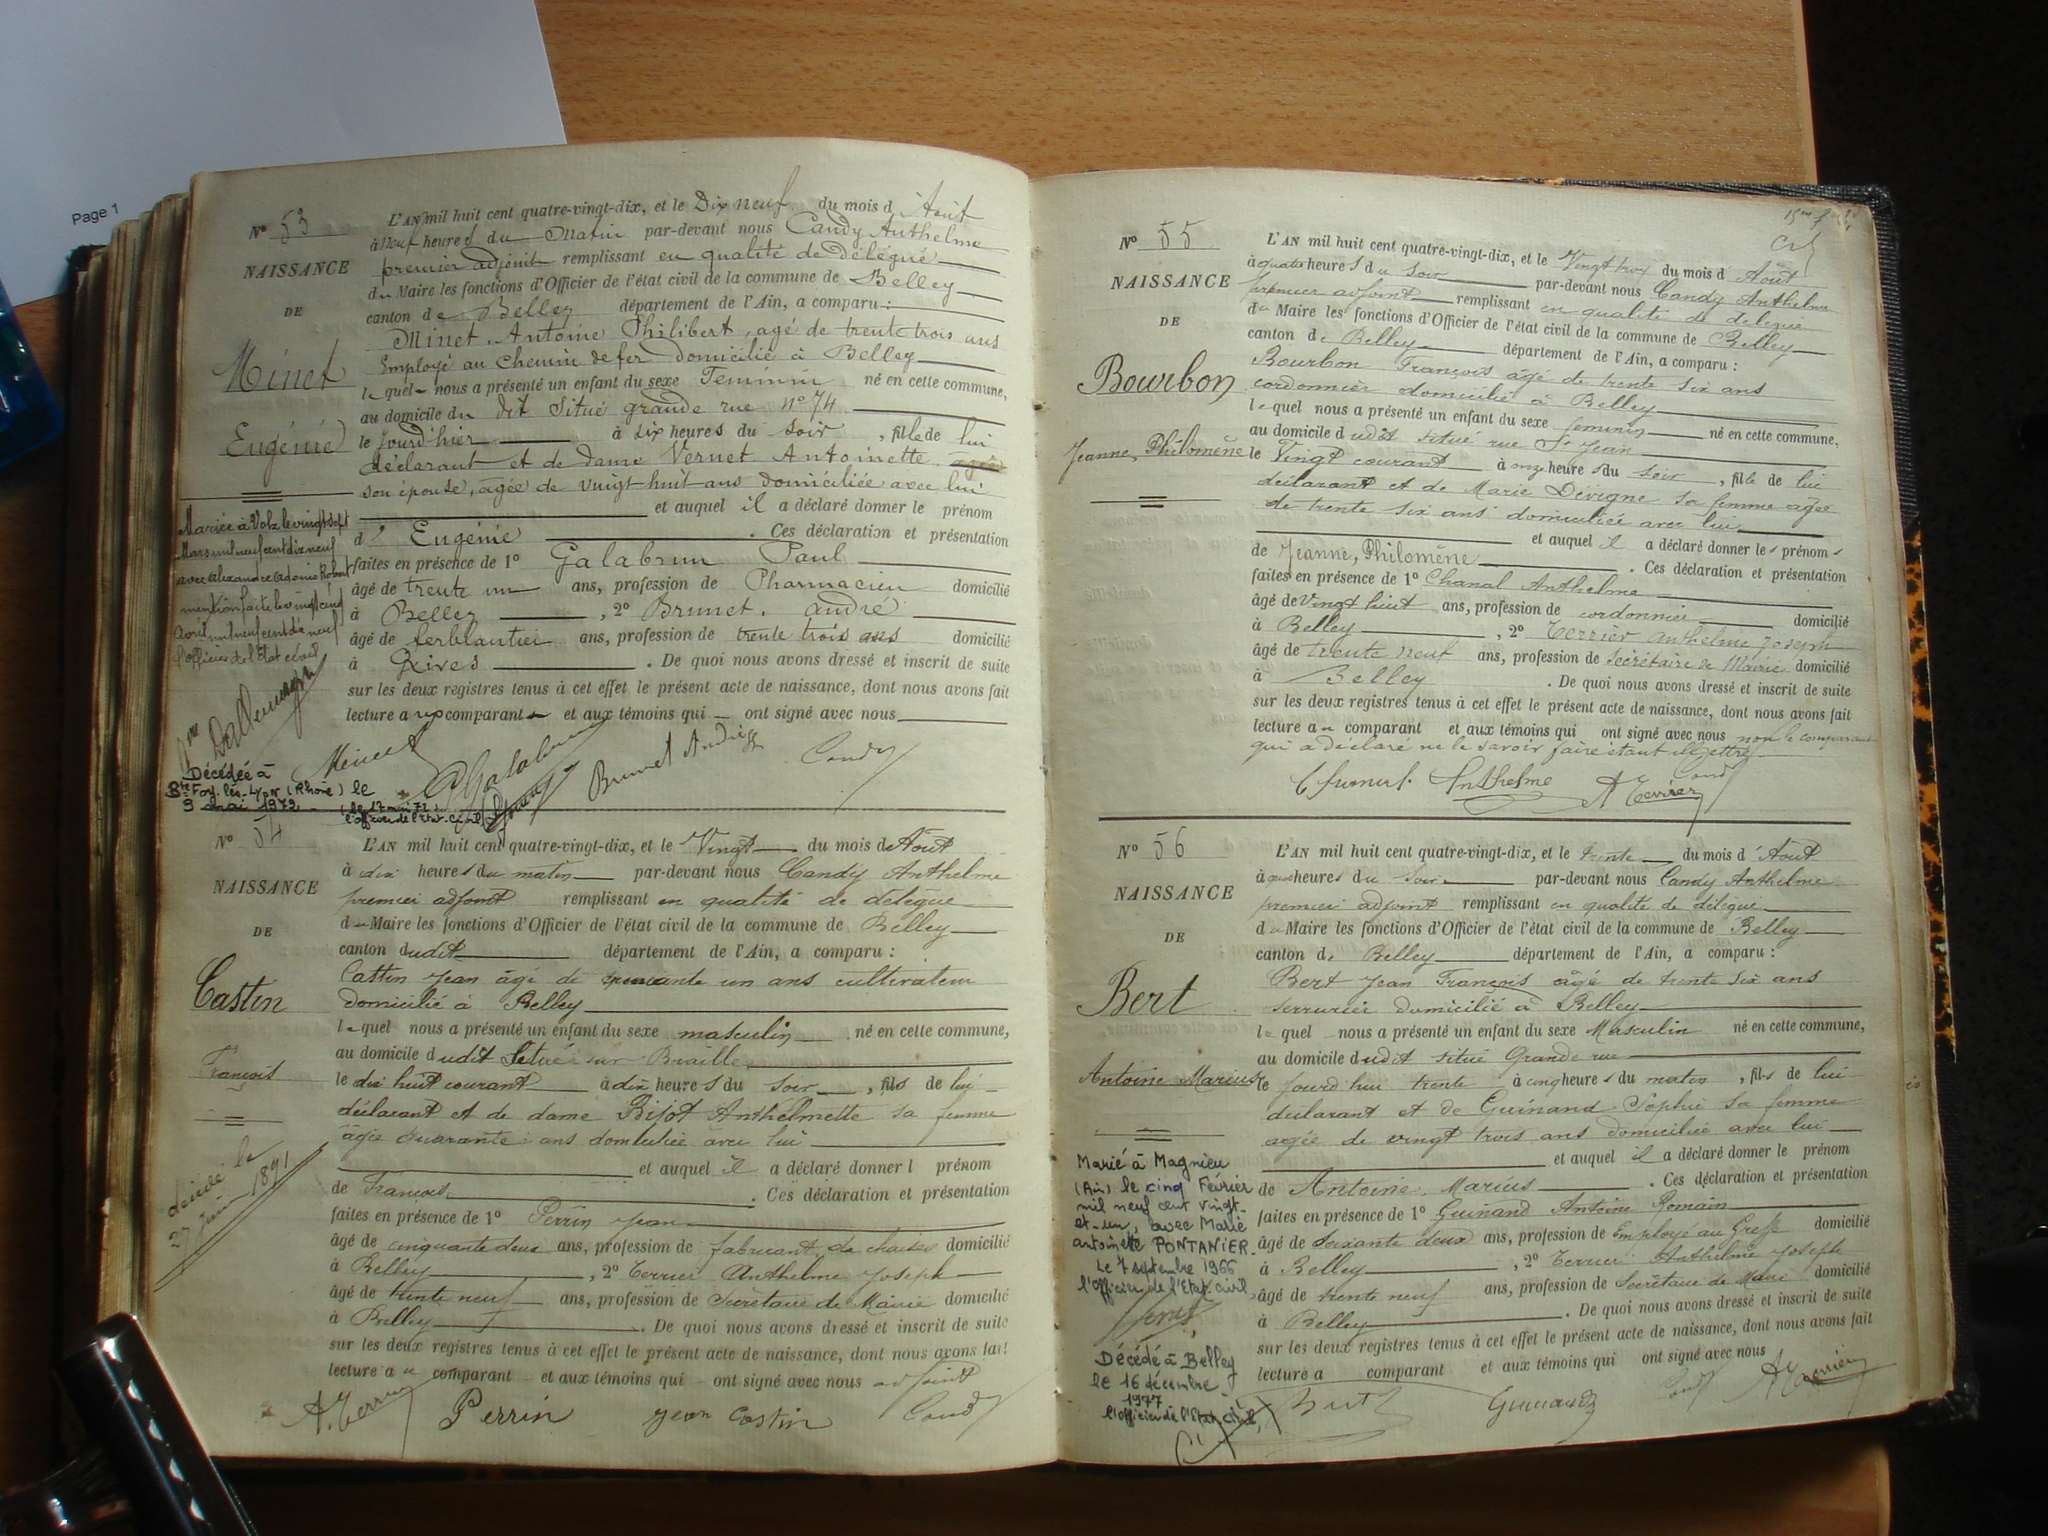 Page 1
N° 53
NAISSANCE
DE
Minet
Eugénie
L'AN mil huit cent quatre-vingt-dix, et le Dix neuf du mois d'Août
à neuf heures du Matin par-devant nous Candy Anthelme
premier adjoint remplissant en qualité de délégué
du Maire les fonctions d'Officier de l'état civil de la commune de Belley
canton de Belley département de l'Ain, a comparu :
Minet, Antoine Philibert, agé de trente trois ans
Employé au Chemin de fer domicilié à Belley
lequel nous a présenté un enfant du sexe Feminin né en cette commune,
au domicile du dit Situé grande rue N° 74
le jourd'hier à six heures du soir, fille de lui
déclarant et de dame Vernet Antoinette agée
son épouse, agée de vingt huit ans domiciliée avec lui
et auquel il a déclaré donner le prénom
d' Eugénie . Ces déclaration et présentation
faites en présence de 1° Galabrun Paul
âgé de trente un ans, profession de Pharmacien domicilié
à Belley , 2° Brunet, andré
âgé de ferblantier ans, profession de trente trois ans domicilié
à . De quoi nous avons dressé et inscrit de suite
sur les deux registres tenus à cet effet le présent acte de naissance, dont nous avons fait
lecture aux comparant et aux témoins qui ont signé avec nous
Mariée à le vingt sept
Mars mil neuf cent dix neuf
avec Alexandre
mention faite le vingt cinq
avril mil neuf cent dix neuf
l'officier de l'Etat civil
Minet Galabrun Brunet André Candy
Décédée à
Ste Foy-lès-Lyon (Rhône) le
9 mai 1972
(le 17 mai 72)
l'officier de l'état-civil
N° 54
NAISSANCE
DE
Castin
François
L'AN mil huit cent quatre-vingt-dix, et le Vingt du mois d'Août
à dix heures du matin par-devant nous Candy Anthelme
premier adjoint remplissant en qualité de délégué
du Maire les fonctions d'Officier de l'état civil de la commune de Belley
canton dudit département de l'Ain, a comparu :
Castin Jean âgé de un ans cultivateur
domicilié à Belley
lequel nous a présenté un enfant du sexe masculin né en cette commune,
au domicile dudit Situé sur
le dix huit courant à dix heures du soir, fils de lui
déclarant et de dame Bijot Anthelmette sa femme
âgée quarante ans domiciliée avec lui
et auquel il a déclaré donner l prénom
de François . Ces déclaration et présentation
faites en présence de 1° Perrin Jean
âgé de cinquante deux ans, profession de fabricant de chaises domicilié
à Belley , 2° Terrier Anthelme Joseph
âgé de trente neuf ans, profession de Secrétaire de Mairie domicilié
à Belley . De quoi nous avons dressé et inscrit de suite
sur les deux registres tenus à cet effet le présent acte de naissance, dont nous avons fait
lecture au comparant et aux témoins qui ont signé avec nous adjoint
décédé le
27 juin 1891
A. Terrier Perrin Jean Castin Candy
N° 55
NAISSANCE
DE
Bourbon
Jeanne, Philomène
L'AN mil huit cent quatre-vingt-dix, et le Vingt trois du mois d Août
à quatre heures du soir par-devant nous Candy Anthelme
premier adjoint remplissant en qualité de délégué
du Maire les fonctions d'Officier de l'état civil de la commune de Belley
canton de Belley département de l'Ain, a comparu :
Bourbon François âgé de trente six ans
cordonnier domicilié à Belley
lequel nous a présenté un enfant du sexe féminin né en cette commune,
au domicile dudit situé rue St Jean
le Vingt courant à onze heures du soir, fille de lui
déclarant et de Marie Dévigne sa femme agée
de trente six ans domiciliée avec lui
et auquel il a déclaré donner les prénoms
de Jeanne, Philomène . Ces déclaration et présentation
faites en présence de 1° Chanal Anthelme
âgé de Vingt huit ans, profession de cordonnier domicilié
à Belley , 2° Terrier Anthelme Joseph
âgé de trente neuf ans, profession de Secrétaire de Mairie domicilié
à Belley . De quoi nous avons dressé et inscrit de suite
sur les deux registres tenus à cet effet le présent acte de naissance, dont nous avons fait
lecture au comparant et aux témoins qui ont signé avec nous non le comparant
qui a déclaré ne le savoir faire étant illettré
Anthelme A Terrier Candy
N° 56
NAISSANCE
DE
Bert
Antoine Marius
L'AN mil huit cent quatre-vingt-dix, et le trente du mois d'Août
à heures du Soir par-devant nous Candy Anthelme
premier adjoint remplissant en qualité de délégué
du Maire les fonctions d'Officier de l'état civil de la commune de Belley
canton de Belley département de l'Ain, a comparu :
Bert Jean François âgé de trente six ans
serrurier domicilié à Belley
lequel nous a présenté un enfant du sexe Masculin né en cette commune,
au domicile dudit situé Grande rue
le jourd'hui trente à cinq heures du matin, fils de lui
déclarant et de Guinand Sophie sa femme
agée de vingt trois ans domiciliée avec lui
et auquel il a déclaré donner le prénom
de Antoine Marius . Ces déclaration et présentation
faites en présence de 1° Guinand Antoine Romain
âgé de soixante deux ans, profession de Employé au Greffe domicilié
à Belley , 2° Terrier Anthelme Joseph
âgé de trente neuf ans, profession de Secrétaire de Mairie domicilié
à Belley . De quoi nous avons dressé et inscrit de suite
sur les deux registres tenus à cet effet le présent acte de naissance, dont nous avons fait
lecture a comparant et aux témoins qui ont signé avec nous
Marié à Magnieu
(Ain) le cinq Février
mil neuf cent vingt-
et-un, avec Marie
antoinette PONTANIER.
Le 7 septembre 1966
l'Officier de l'Etat-civil,
Décédé à Belley
le 16 décembre
1977
l'officier de l'Etat civil,
Bert Guinand Candy A Terrier